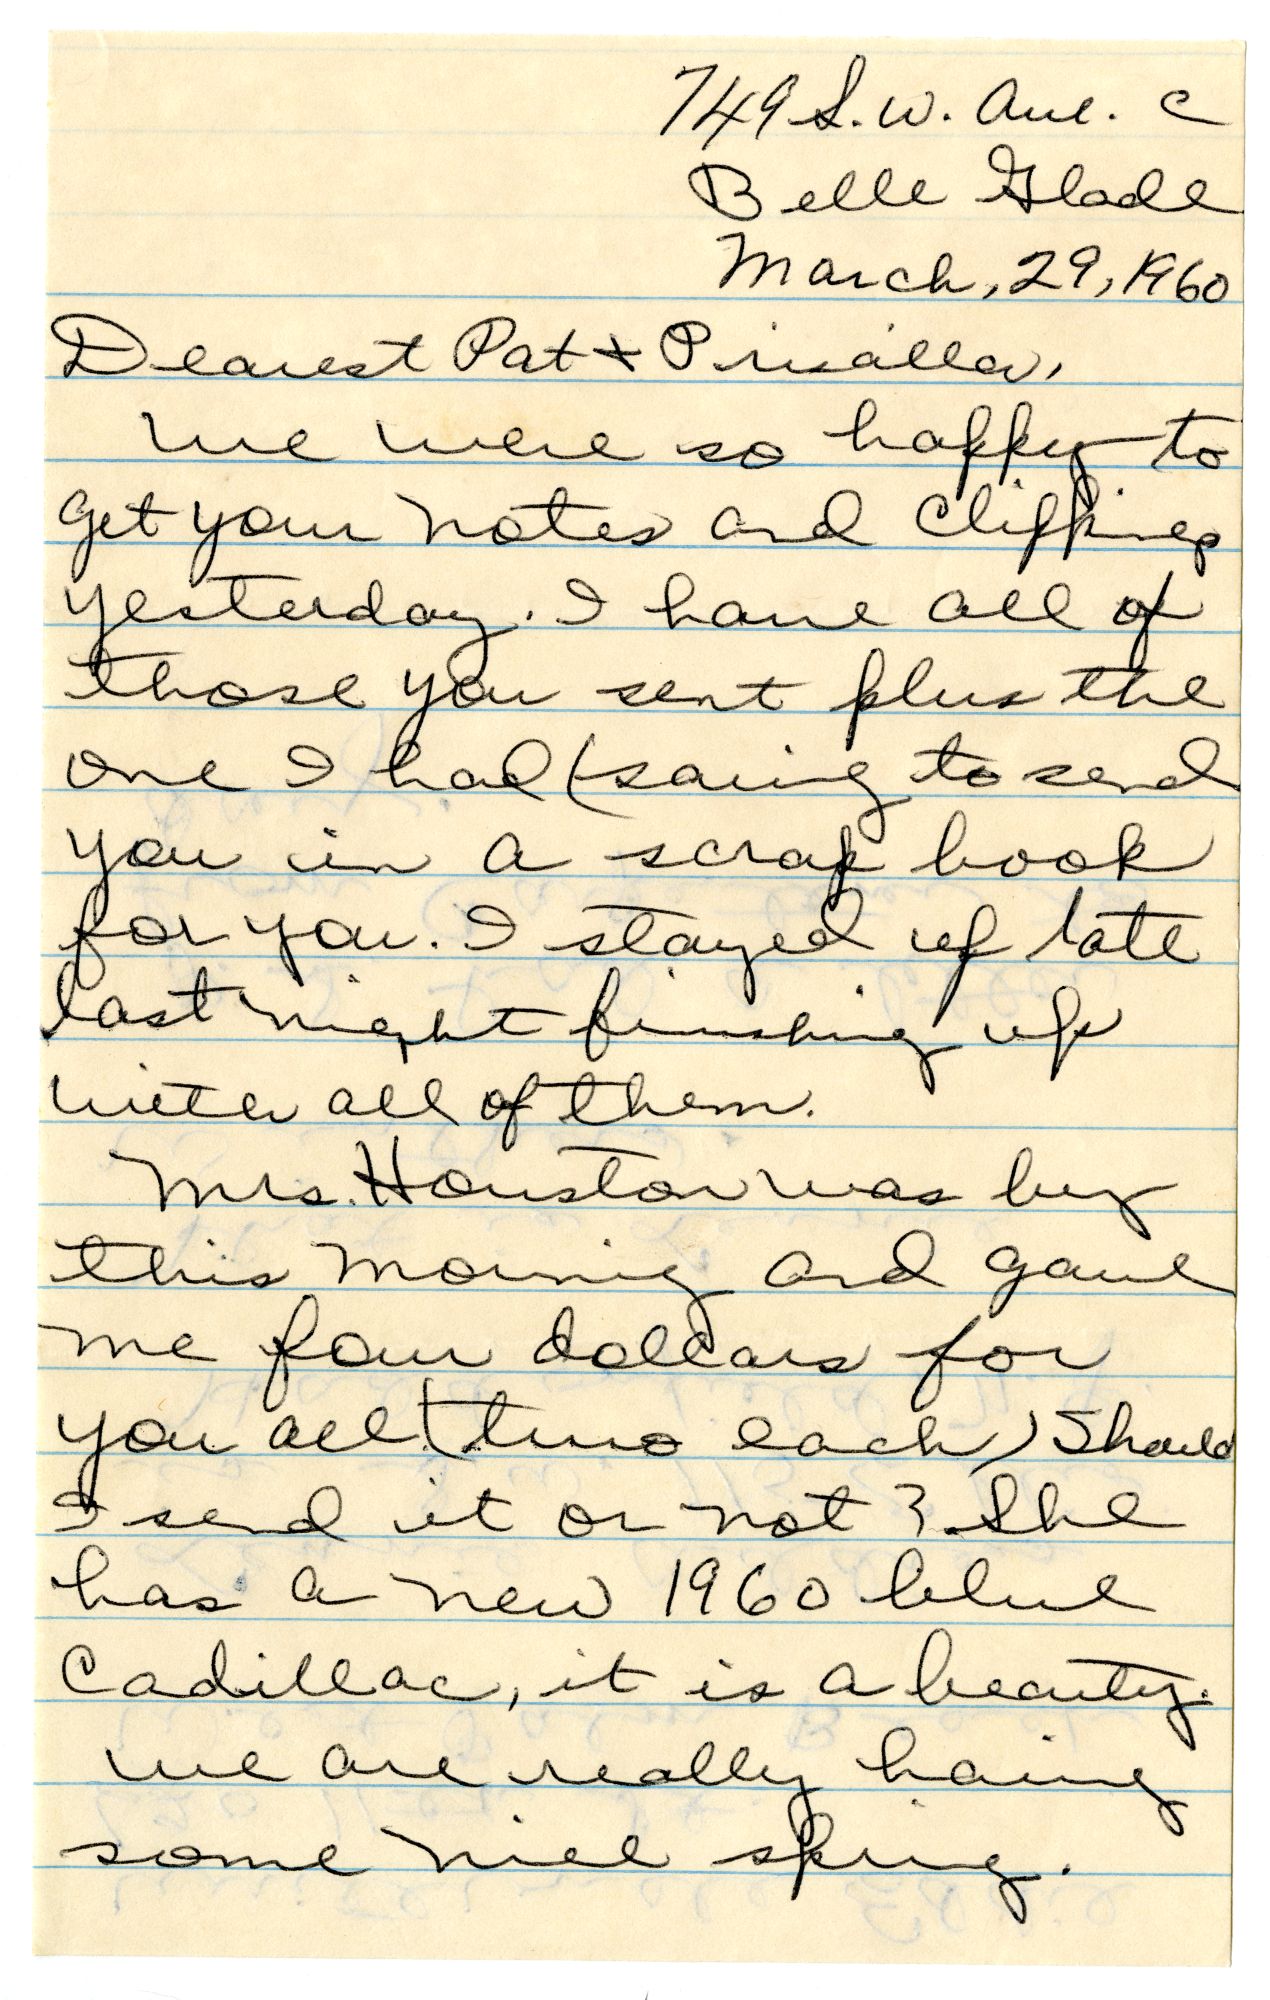 749 S.W. Ave. C
Belle Glade
March, 29, 1960
Dearest Pat + Priscilla,
We were so happy to
get your notes and clippings
yesterday. I have all of
those you sent plus the
one I had (saving to send
you in a scrap book
for you. I stayed up late
last night finishing up
with all of them.
Mrs. Houston was by
this morning and gave
me four dollars for
you all (two each) Should
I send it or not? She
has a new 1960 blue
Cadillac, it is a beauty.
We are really having
some nice spring.